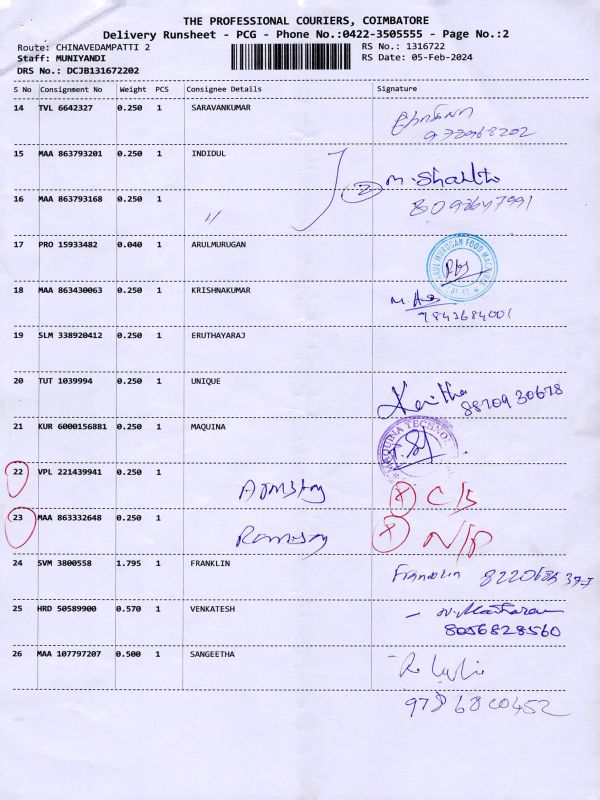 THE PROFESSIONAL COURIERS, COIMBATORE
Delivery Runsheet - PCG - Phone No.:0422-3505555 - Page No.:2
Route: CHINAVEDAMPATTI 2 RS No.: 1316722
Staff: MUNIYANDI RS Date: 05-Feb-2024
DRS No.: DCJB131672202
S No Consignment No Weight PCS Consignee Details Signature
14 TVL 6642327 0.250 1 SARAVANKUMAR
15 MAA 863793201 0.250 1 INDIDUL
2 M.
16 MAA 863793168 0.250 1 〃
17 PRO 15933482 0.040 1 ARULMURUGAN
ARULMURUGAN FOOD
18 MAA 863430063 0.250 1 KRISHNAKUMAR
7843684001
19 SLM 338920412 0.250 1 ERUTHAYARAJ
20 TUT 1039994 0.250 1 UNIQUE
88709 30678
21 KUR 6000156881 0.250 1 MAQUINA
MAQUINA TECHNO
22 VPL 221439941 0.250 1
23 MAA 863332648 0.250 1 N/P
24 SVM 3800558 1.795 1 FRANKLIN Franklin
25 HRD 50589900 0.570 1 VENKATESH
8056828560
26 MAA 107797207 0.500 1 SANGEETHA